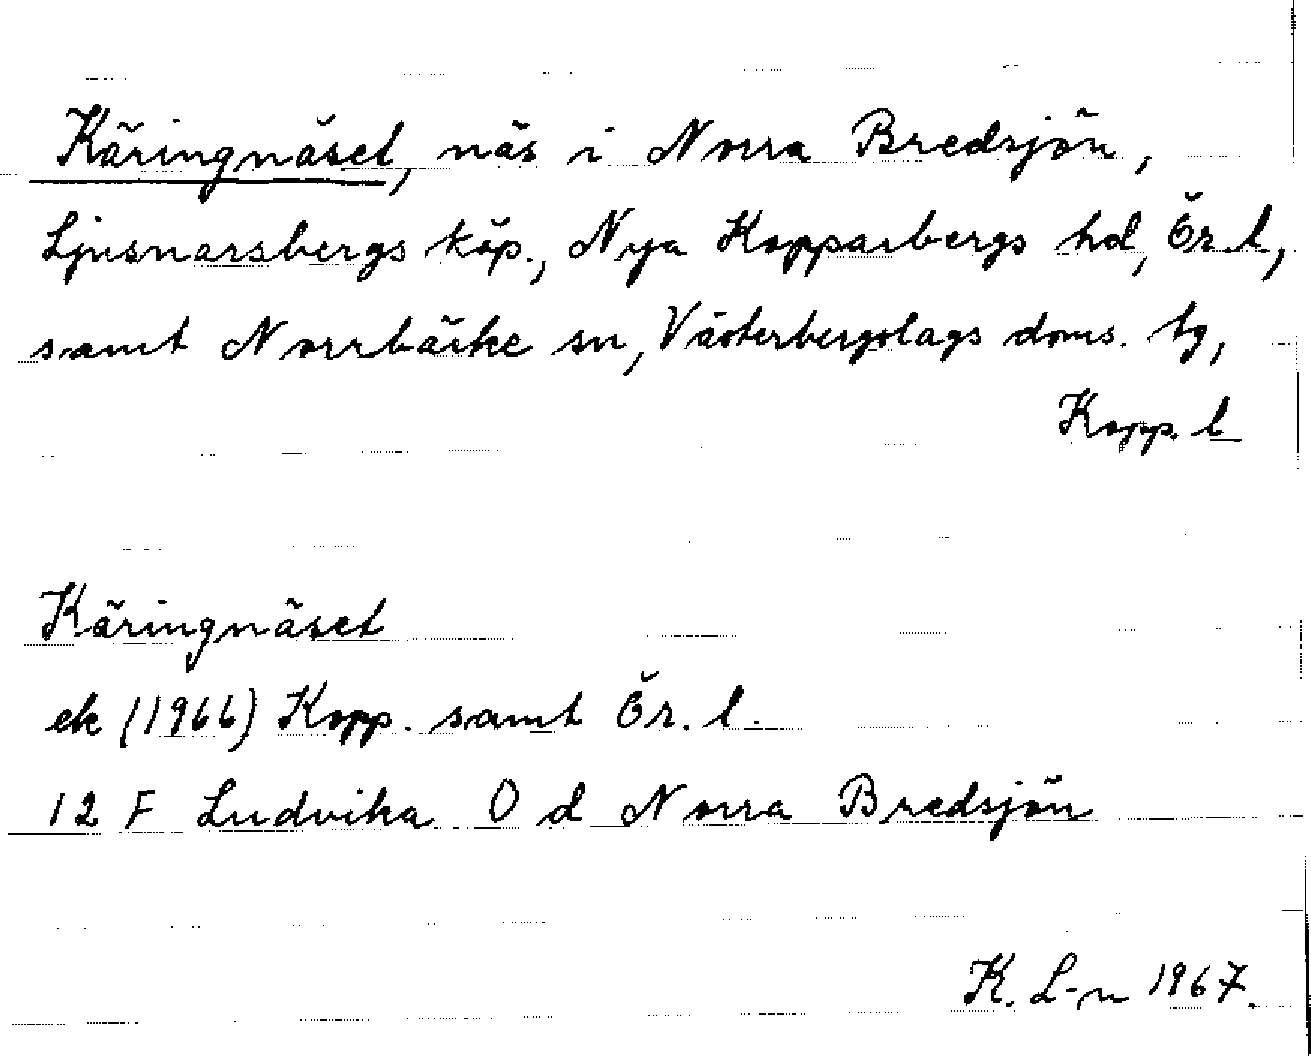 Käringnäset, näs i Norra Bredsjön,
Ljusnarsbergs köp., Nya Kopparbergs hd, Ör. l,
samt Norrbärke sn, Västerbergslags doms. tg,
Kopp. l
Käringnäset
ek (1966) Kopp. samt Ör. l.
12 F Ludvika 0 d Norra Bredsjön
K. L-n 1967.